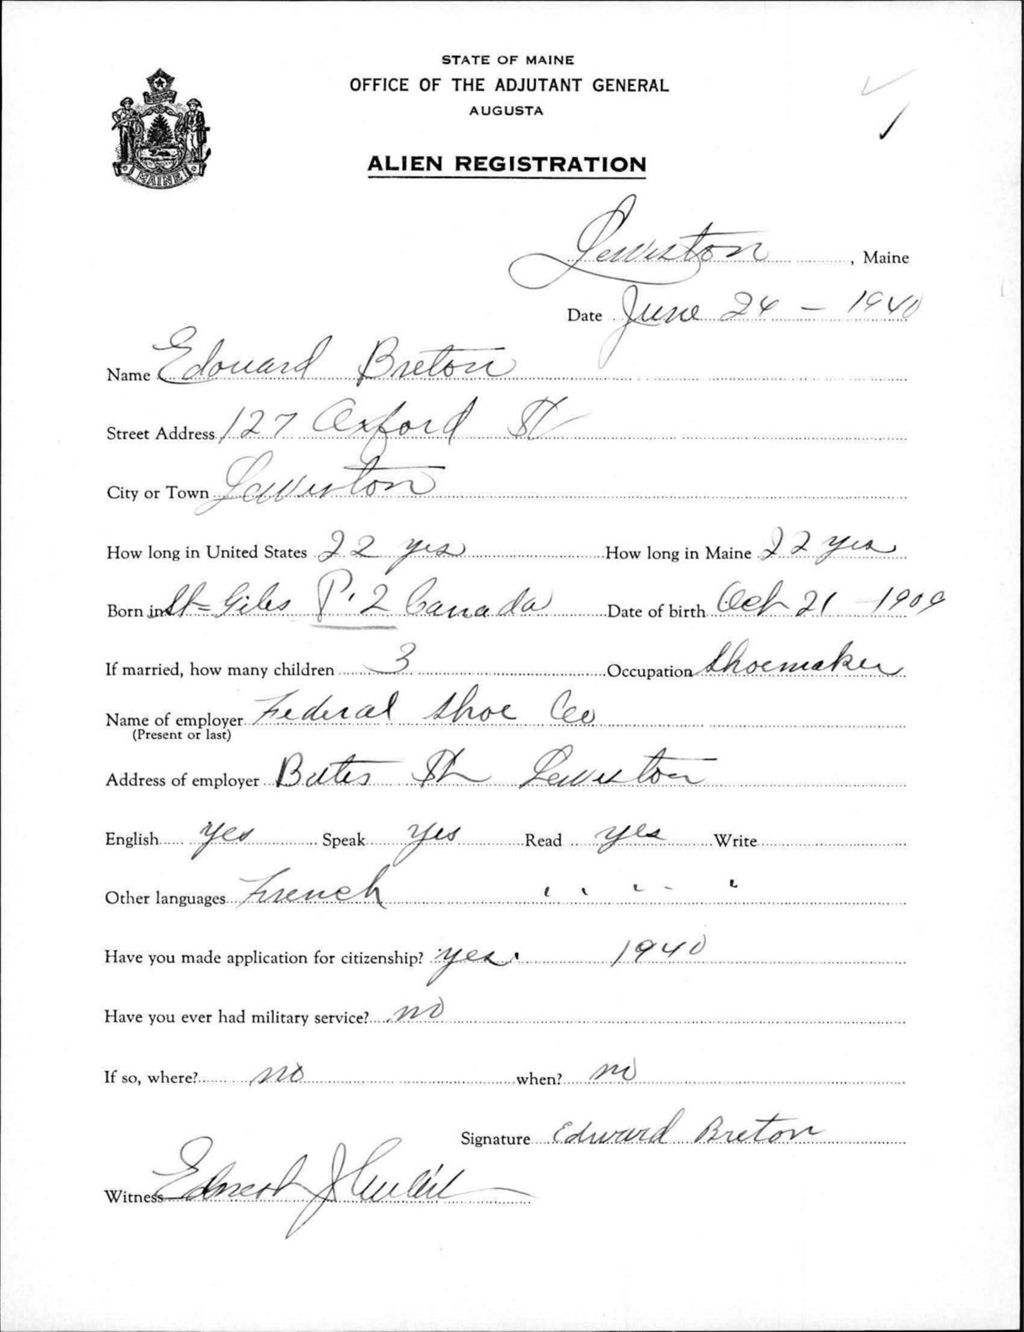 STATE OF MAINE
OFFICE OF THE ADJUTANT GENERAL
AUGUSTA
MAINE
ALIEN REGISTRATION
Lewiston, Maine
Date June 24 - 1940
Name Edouard Breton
Street Address 127 Oxford St
City or Town Lewiston
How long in United States 22 yrs How long in Maine 22 yrs
Born in St- Giles P. 2 Canada Date of birth Oct 21 - 1909
If married, how many children 3 Occupation Shoemaker
Name of employer Federal Shoe Co
(Present or last)
Address of employer Bates St Lewiston
English yes Speak yes Read yes Write
Other languages French " " "
Have you made application for citizenship? yes. 1940
Have you ever had military service? no
If so, where? no when? no
Signature Edward Breton
Witness Ernest J